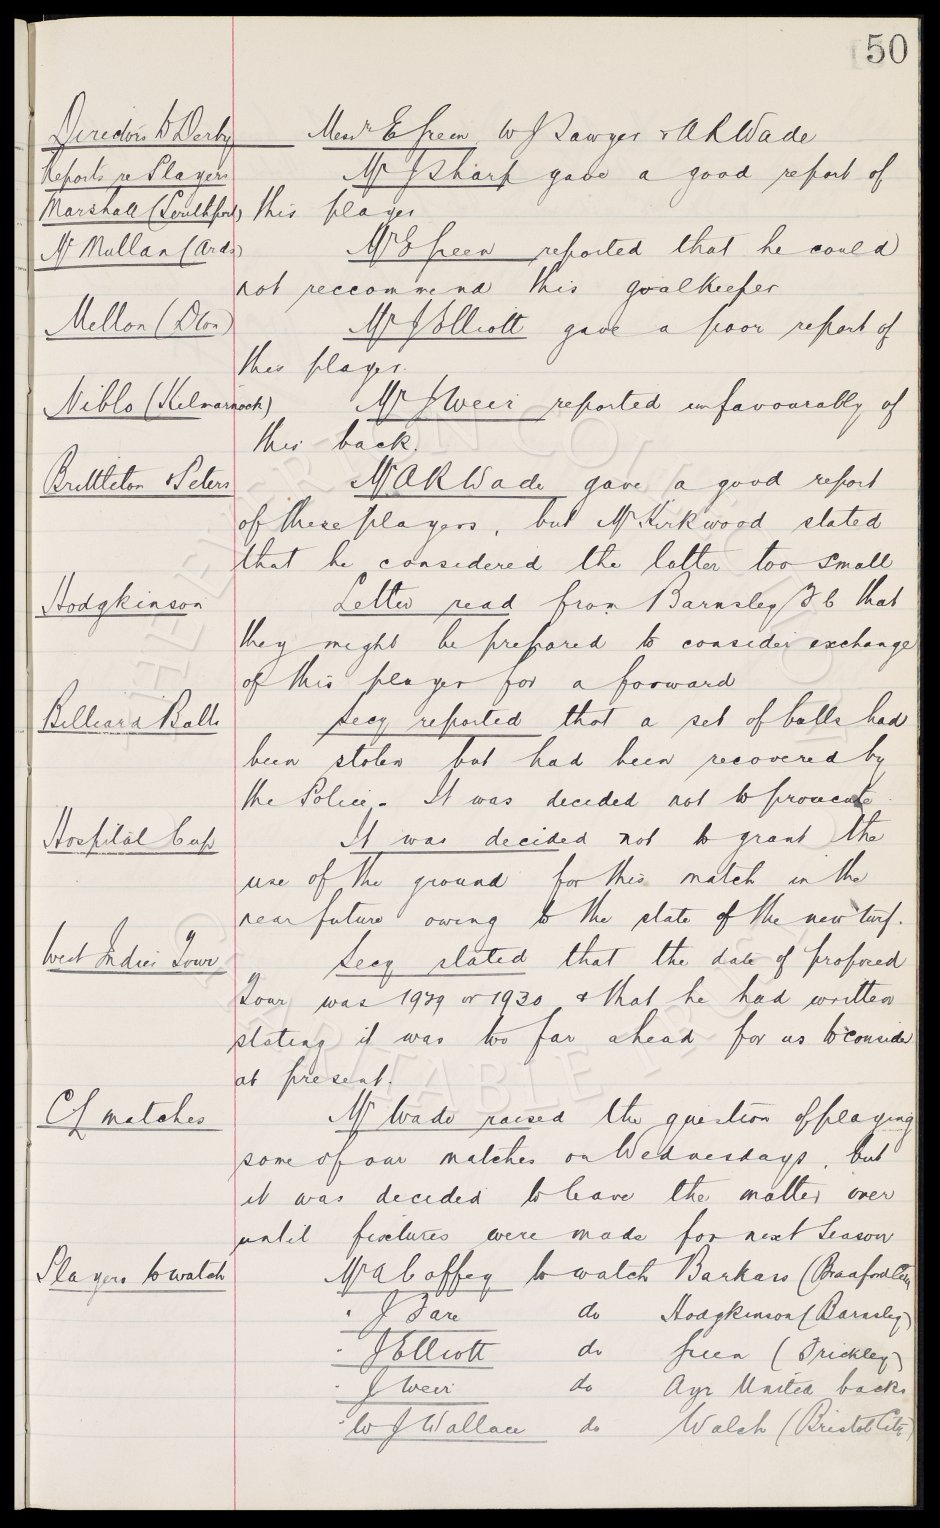 50
Directors to Derby Messrs E Green, W J Sawyer & A R Wade
Reports re Players Mr J Sharp gave a good report of
Marshall (Southport) this player
McMullan (Ards) Mr E Green reported that he could
not reccommend this goalkeeper
Mellon (Dton) Mr J Elliott gave a poor report of
this player.
Niblo (Kilmarnock) Mr J Weir reported unfavourably of
this back.
Brittleton & Peters Mr A R Wade gave a good report
of these players, but Mr Kirkwood stated
that he considered the latter too small
Hodgkinson Letter read from Barnsley F C that
they might be prepared to consider exchange
of this player for a forward
Billiard Balls Secy reported that a set of balls had
been stolen but had been recovered by
the Police. It was decided not to prosecute
Hospital Cup It was decided not to grant the
use of the ground for this match in the
near future owing to the state of the new turf.
West Indies Tour Secy stated that the date of proposed
Tour was 1929 or 1930 & that he had written
stating it was too far ahead for us to consider
at present.
CL matches Mr Wade raised the question of playing
some of our matches on Wednesdays, but
it was decided to leave the matter over
until fixtures were made for next Season
Players to watch Mr A Coffey to watch Barkas (Bradford City)
" J Fare do Hodgkinson (Barnsley)
" J Elliott do Green (Frickley)
" J Weir do Ayr United backs
" W J Wallace do Walsh (Bristol City)
THE EVERTON COLLECTION
CHARITABLE TRUST